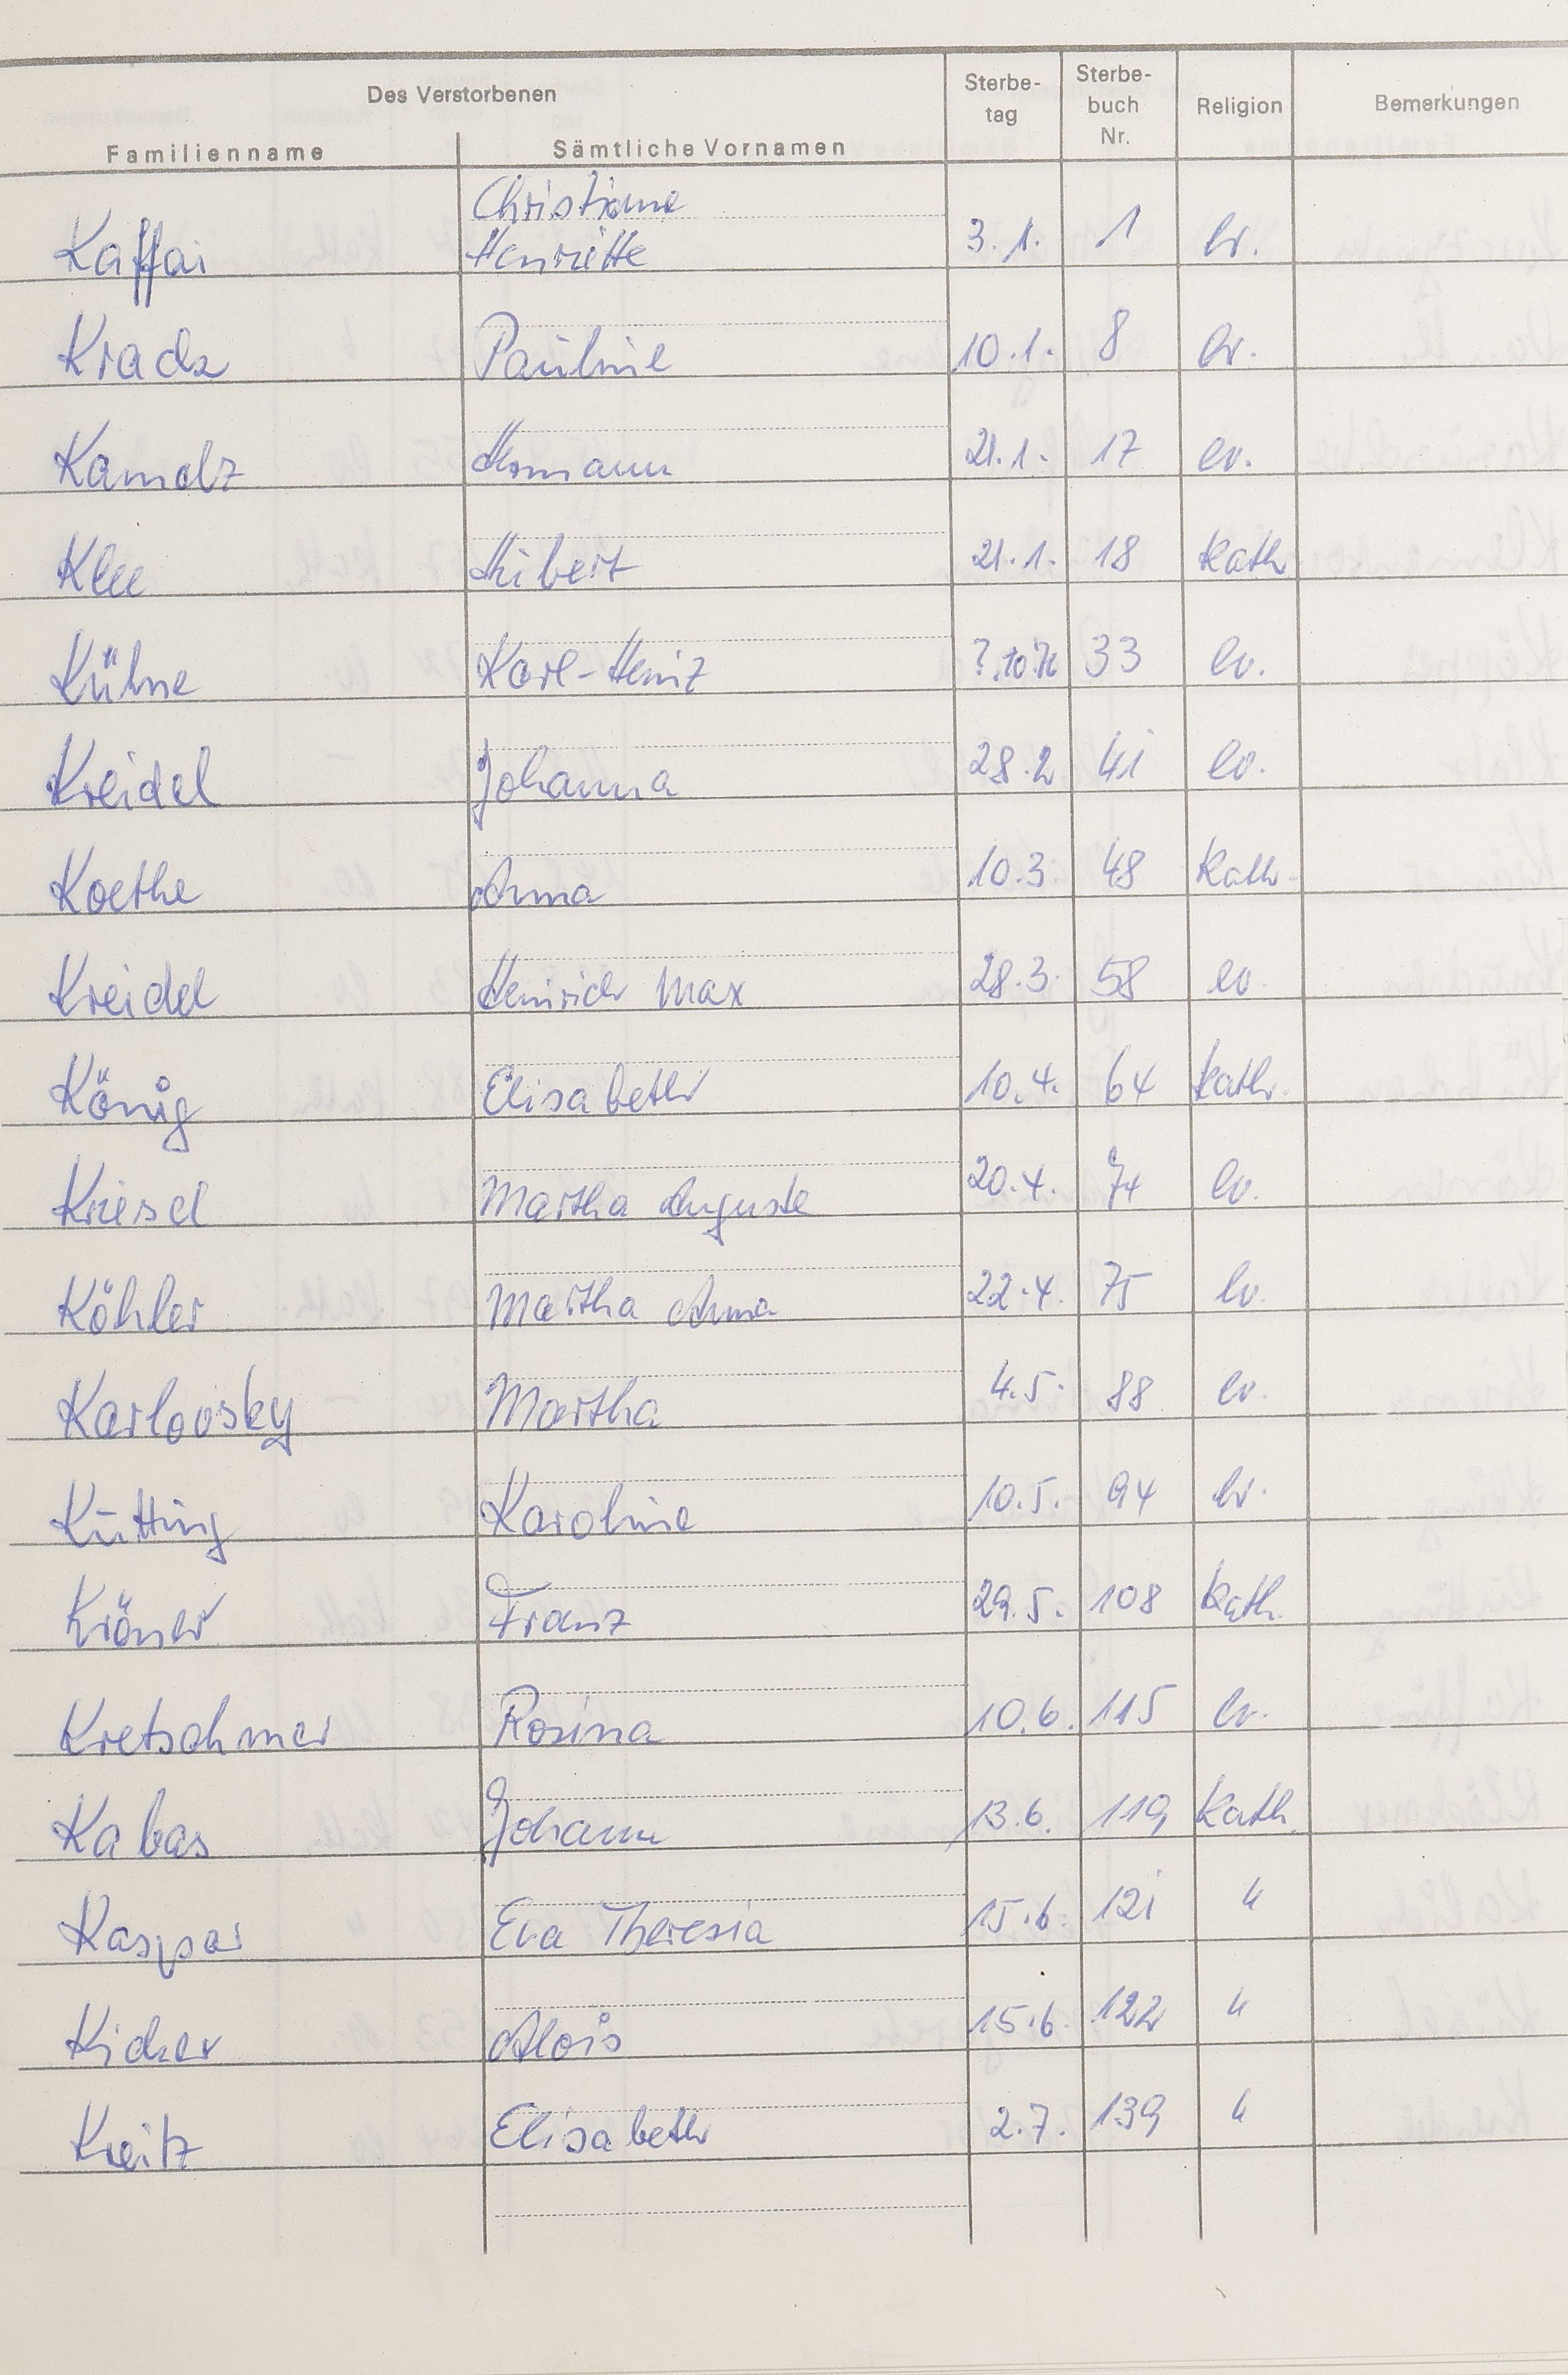 Des Verstorbenen Sterbe- Sterbe- Religion Bemerkungen
tag buch
Familienname Sämtliche Vornamen Nr.
Christiane
Kaffai Henriette 3.1. 1 ev.
Pauline 10.1. 8 ev.
Hermann 21.1. 17 ev.
Klee Hubert 21.1. 18 kath
Kühne Karl-Heinz 33 ev.
Kreidel Johanna 28.2 41 ev.
Koethe Anna 10.3. 48 Kath.
Kreidel Heinrich Max 28.3. 58 ev.
König Elisabeth 10.4. 64 kath.
Kriesel Martha Auguste 20.4. 74 ev.
Köhler Martha Anna 22.4. 75 ev.
Karlovsky Martha 4.5. 88 ev.
Kütting Karoline 10.5. 94 ev.
Kröner Franz 29.5. 108 kath.
Kretschmer Rosina 10.6. 115 ev.
Kabas Johann 13.6. 119 kath.
Kaspar Eva Theresia 15.6. 121 "
Kicker Alois 15.6. 122 "
Kreitz Elisabeth 2.7. 139 "